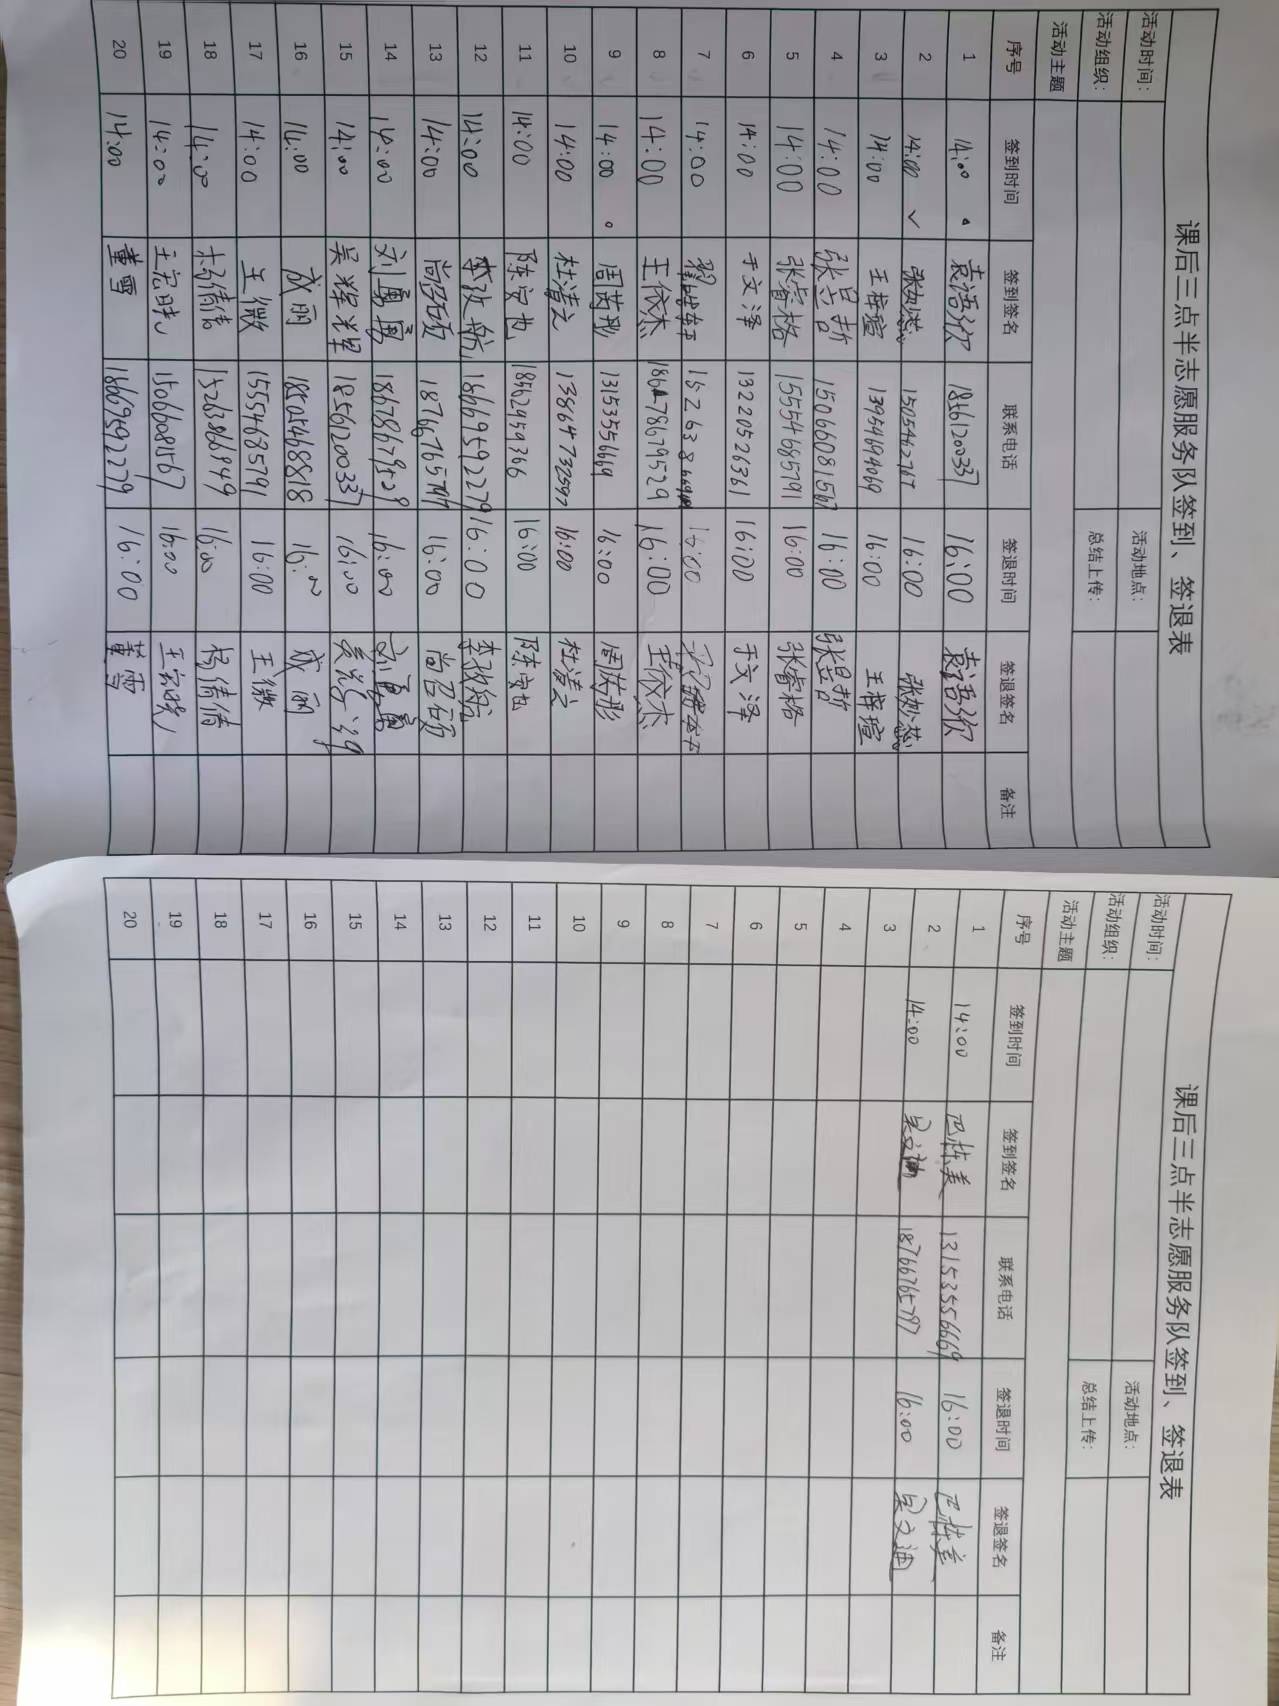 课后三点半志愿服务队签到、签退表
活动时间: 活动地点:
活动组织: 总结上传:
活动主题
序号 签到时间 签到签名 联系电话 签退时间 签退签名 备注
1 14:00 袁语 18561200337 16:00 袁语
2 14:00 ✓ 16:00
3 14:00 王梓瑄 13954694069 16:00 王梓瑄
4 14:00 张昱哲 15066081567 16:00 张昱哲
5 14:00 张睿格 15554685791 16:00 张睿格
6 14:00 于文泽 13220526361 16:00 于文泽
7 14:00 16:00
8 14:00 王依杰 16:00 王依杰
9 14:00 周茵彤 13153556669 16:00 周茵彤
10 14:00 杜清之 13864732597 16:00 杜清之
11 14:00 陈安也 18562959366 16:00 陈安也
12 14:00 李孜航 18669592279 16:00 李孜航
13 14:00 尚召硕 18766765797 16:00 尚召硕
14 14:00 刘 18678679529 16:00 刘
15 14:00 吴 18561200337 16:00 吴
16 14:00 成丽 18505468818 16:00 成丽
17 14:00 王微 15554685791 16:00 王微
18 14:00 杨倩倩 15263866949 16:00 杨倩倩
19 14:00 王宏晓 15066081567 16:00 王宏晓
20 14:00 董雪 18669592279 16:00 董雪
课后三点半志愿服务队签到、签退表
活动时间: 活动地点:
活动组织: 总结上传:
活动主题
序号 签到时间 签到签名 联系电话 签退时间 签退签名 备注
1 14:00 巴栋美 13153556669 16:00 巴栋美
2 14:00 吴文迪 18766765797 16:00 吴文迪
3
4
5
6
7
8
9
10
11
12
13
14
15
16
17
18
19
20